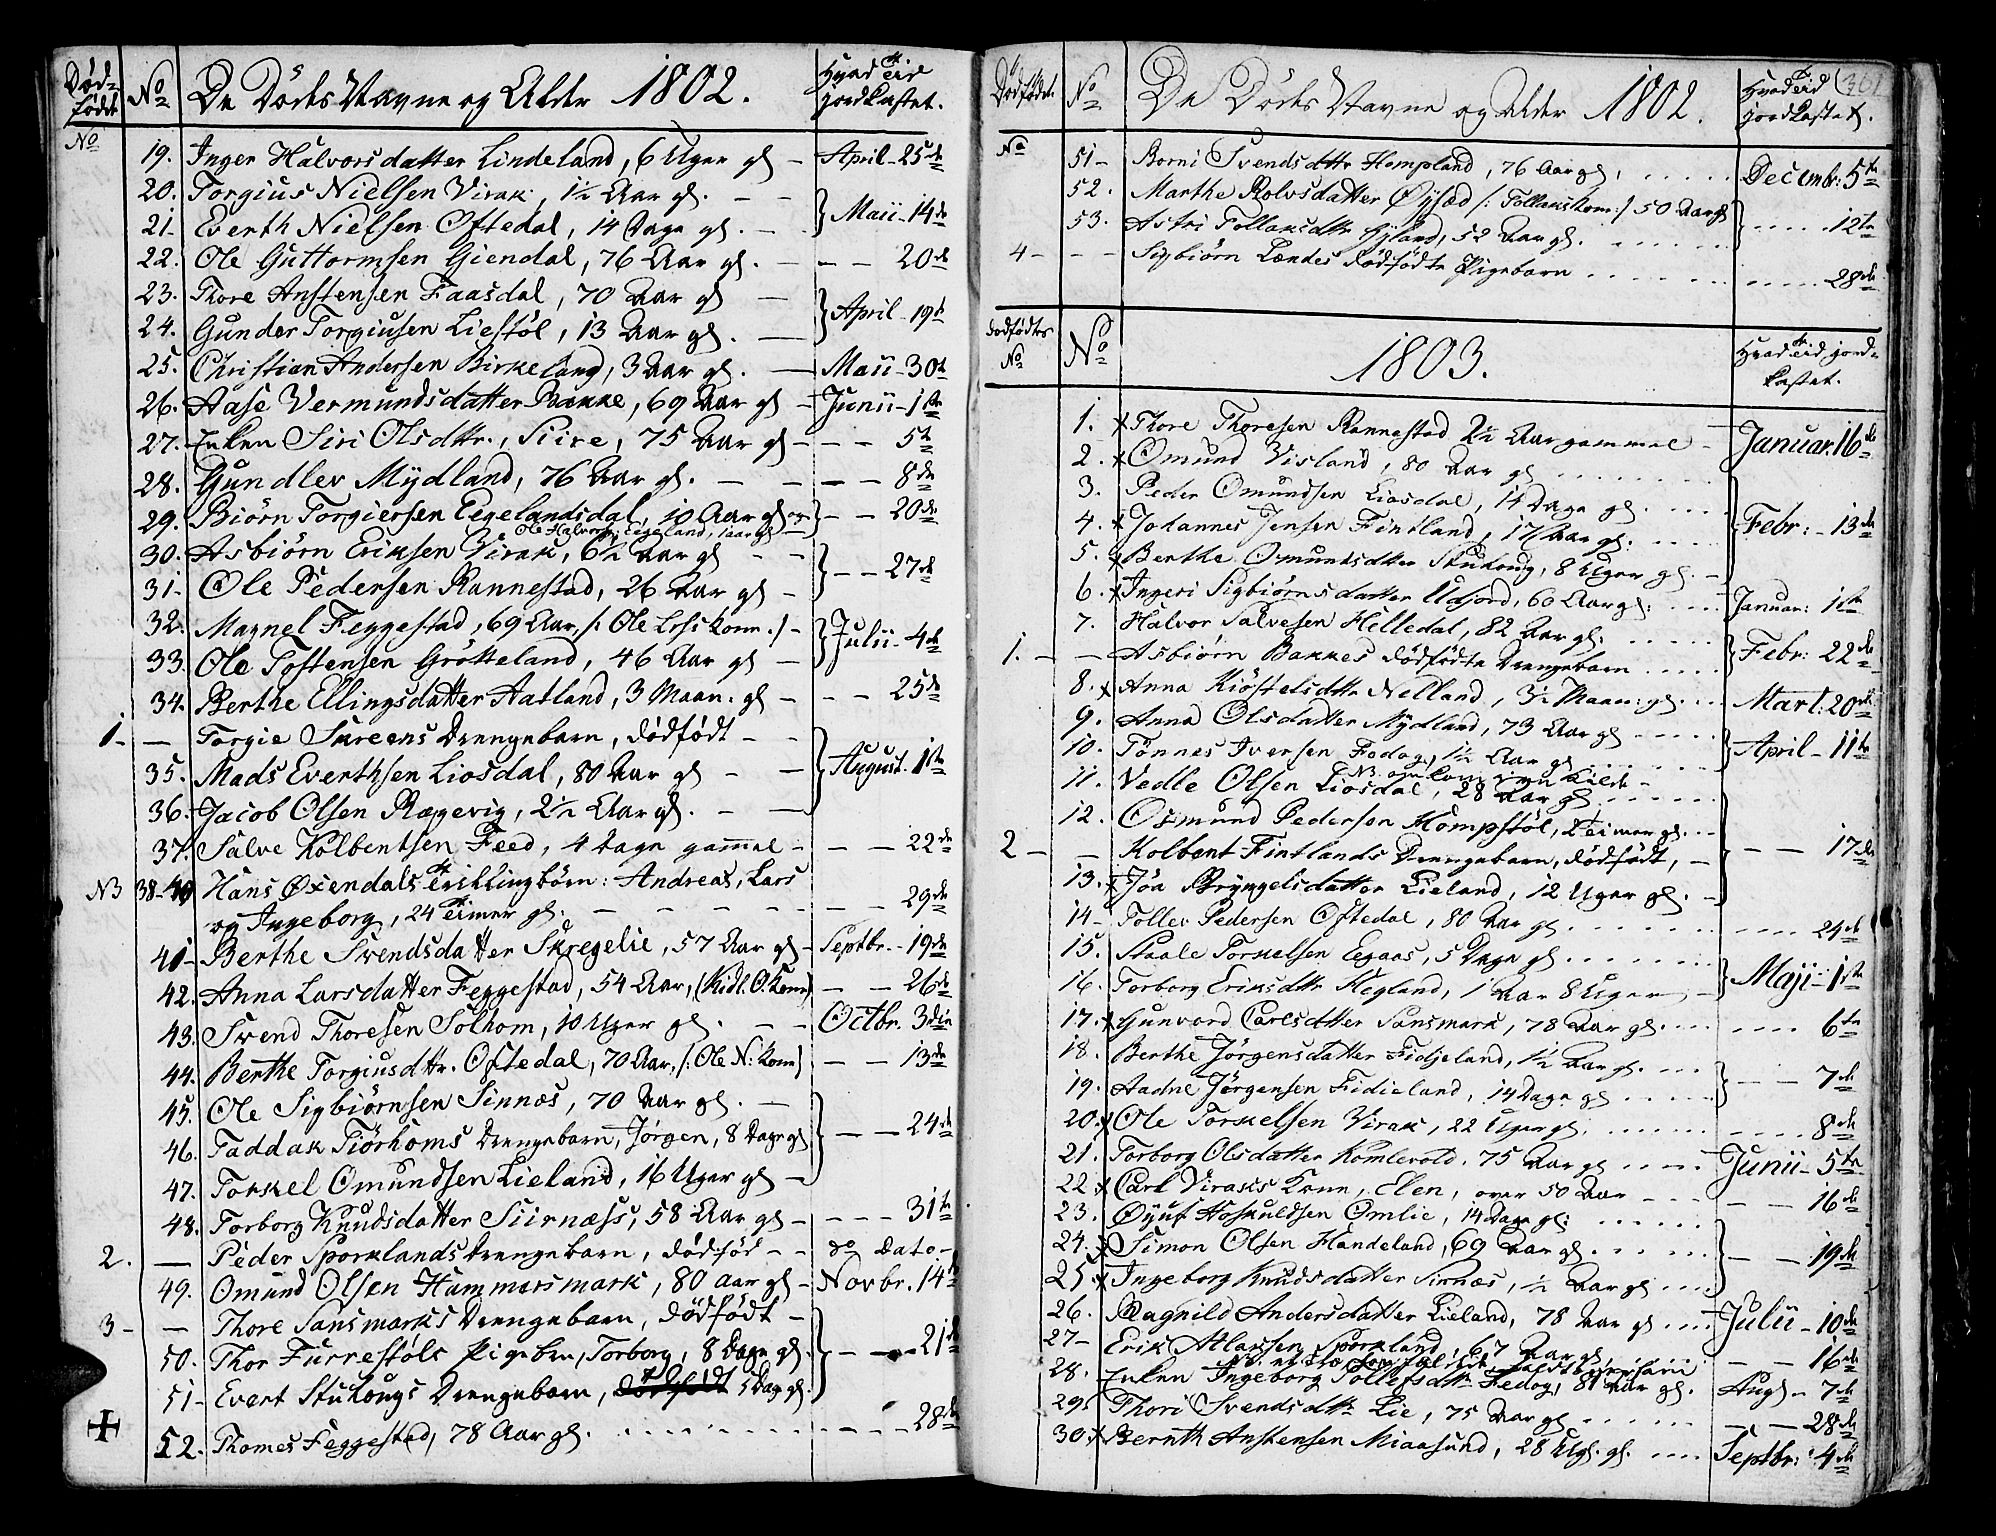 Død-
fødte
No
De Dødes Navne og Alder 1802.
Hvad Tid
Jordkastet.
No
19. Inger Halvorsdatter Lindeland, 6 Uger gl - April - 25de
20. Torgius Nielsen Virak, 1½ Aar gl. - -
21- Everth Nielsen Oftedal, 14 Dage gl. - Maii - 14de
22. Ole Guttormsen Giendal, 76 Aar gl. - - - 20de
23. Thore Anstensen Faasdal, 70 Aar gl -
24. Gunder Torgiusen Liestøl, 13 Aar gl. - April - 19de
25. Christian Andersen Birkeland, 3 Aar gl. - Maii - 30te
26. Aase Vermundsdatter Bakke, 69 Aar gl - Junii - 1ste
27. Enken Siri Olsdttr., Siire, 75 Aar gl - - - 5te
28. Gundlev Mydland, 76 Aar gl. - - - - 8de
29. Biørn Torgiersen Eegelandsdal, 10 Aar gl og - - 20de
Ole Halvors. Eegeland, 1 aar gl
30. Asbiørn Eriksen Virak, 6½ Aar gl - -
31- Ole Pedersen Rannestad, 26 Aar gl - - - 27de
32. Magnel Feggestad, 69 Aar, /: Ole Lars: Kone :/ -
33. Ole Tostensen Grøtteland, 46 Aar gl - Julii - 4de
34. Berthe Ellingsdatter Aatland, 3 Maan. gl - - - 25de
1- - Torgie Skreens Drengebarn, dødfødt - -
35. Mads Everthsen Liosdal, 80 Aar gl - - August. 1ste
36. Jacob Olsen Rægevig, 2½ Aar gl. - -
37. Salve Kolbentsen Feed, 4 Dage gammel - - - 22de
N3 38-40 Hans Øxendals Trillingbørn: Andreas, Lars
og Ingeborg, 24 Timer gl. - - - - - - - 29de
41- Berthe Svendsdatter Skregelie, 57 Aar gl - Septbr. - 19de
42. Anna Larsdatter Feggestad, 54 Aar, (Kidl. O. Kone) - - 26de
43. Svend Thoresen Solhom, 10 Uger gl. - - Octbr. 3die
44. Berthe Torgiusdttr. Oftedal, 70 Aar, /: Ole N: Kone) - - 13de
45. Ole Sigbiørnsen Sinnes, 70 Aar gl. -
46. Taddak Tiørhoms Drengebarn, Jørgen, 8 Dage gl - - 24de
47. Torkel Omundsen Lieland, 16 Uger gl -
48. Torborg Knudsdatter Siirnæs, 58 Aar gl - - - - 31te
2. - Peder Sporklands Drengebarn, dødfød - - do Dato -
49. Omund Olsen Hammersmark, 80 aar gl - Novbr. 14de
3- - Thore Sansmarks Drengebarn, dødfødt -
50. Thor Furrestøls Pigebn, Torborg, 8 Dage gl - - - 21de
51- Evert Stukougs Drengebarn, dødfødt 5 Dag gl.
52. Thomes Feggestad, 78 Aar gl. - - - 28de
Dødfødte
No
De Dødes Navne og Alder 1802.
Hvad Tid
Jordkastet.
361
No
51- Borni Svendsdttr Hompland, 76 Aar gl. Decembr: 5te
52. Marthe Rolvsdatter Øysæd /: Tollaks Kone :/ 50 Aar gl
53. Astri Tollaksdttr Gyland, 52 Aar gl. 12te
4- - - Sigbiørn Lændes dødfødte Pigebarn 28de
Dødfødtes
No
No
1803.
Hvad Tid jord-
kastet.
1. x Thore Thoresen Rannestad 2½ Aar gammel -
2. x Omund Visland, 80 Aar gl Januar. 16de
3. Peder Omundsen Liosdal, 14 Dage gl.
4. x Johannes Jensen Fintland, 17 Aar gl. Febr: - 13de
5. x Berthe Omundsdtter Stukoug, 8 Uger gl. -
6. x Ingeri Sigbiørnsdatter Udjord, 60 Aar gl: Januar: 1ste
7. Halvor Salvesen Helledal, 82 Aar gl.
1. - - Asbiørn Bakkes dødfødte Drengebarn Febr: 22de
8. x Anna Kiøstelsdttr Nelland, 3½ Maan: gl. Mart: 20de
9. Anna Olsdatter Mydland, 73 Aar gl
10. Tønnes Iversen Fodog, 1½ Aar gl April - 11te
11. Vedle Olsen Liosdal, 28 Aar gl
12. Osmund Pedersen Hompstøl, 2 Timer gl.
2 - - Kolbent Fintlands Drengebarn, dødfødt, - - - 17de
13. x Jøa Bryngelsdatter Lieland, 12 Uger gl. -
14- Tollev Pedersen Oftedal, 80 Aar gl 24de
15. Staale Torkelsen Eegaas, 5 Dage gl
16. Torborg Eriksdttr Hegland, 1 Aar 8 Uger - Maji - 1ste
17. x Gunvord Carlsdatter Sansmark, 78 Aar gl. 6te
18. Berthe Jørgensdatter Fidjeland, 1½ Aar gl.
19. Aadne Jørgensen Fidieland, 14 Dage gl - - 7de
20. x Ole Torkelsen Virak, 22 Uger gl. 8de
21. Torborg Olsdatter Komlevold, 75 Aar gl Junii - 5te
22. x Carl Viraks Kone, Elen, over 50 Aar - - 16de
23. Øyuf Hoskuldsen Omlie, 14 Dage gl:
24. x Simon Olsen Handeland, 69 Aar gl. - - 19de
25. x Ingeborg Knudsdatter Sirnæs, ½ Aar gl
26. Ragnild Andersdatter Lieland, 78 Aar gl Julii - 10de
27- Erik Atlaksen Sporkland, 67 Aar gl - - 16de
28. Enken Ingeborg Tollefsdttr Fedog, 81 Aar gl. Aug - 7de
29. Thori Svendsdttr Lie, 75 Aar gl - - 28de
30. x Bernth Anstensen Miaasund, 28 Ug: gl. Septbr: 4de